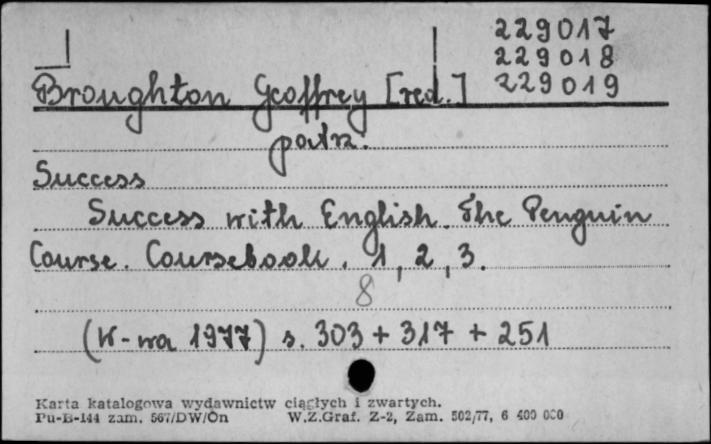 229017
229018
Broughton Geoffrey [red.] 229019
patrz.
Success
Success with English. The Penguin
Course. Coursebook. 1, 2, 3.
8
(W-wa 1977) s. 303 + 317 + 251
Karta katalogowa wydawnictw ciągłych i zwartych.
Pu-B-144 zam. 567/DW/On W.Z.Graf. Z-2, Zam. 502/77, 6 400 000